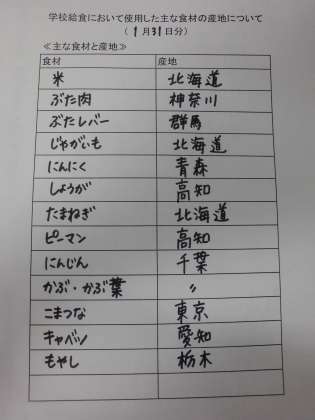 学校給食において使用した主な食材の産地について
(1月31日分)
≪主な食材と産地≫
食材 産地
米 北海道
ぶた肉 神奈川
ぶたレバー 群馬
じゃがいも 北海道
にんにく 青森
しょうが 高知
たまねぎ 北海道
ピーマン 高知
にんじん 千葉
かぶ・かぶ葉 〃
こまつな 東京
キャベツ 愛知
もやし 栃木